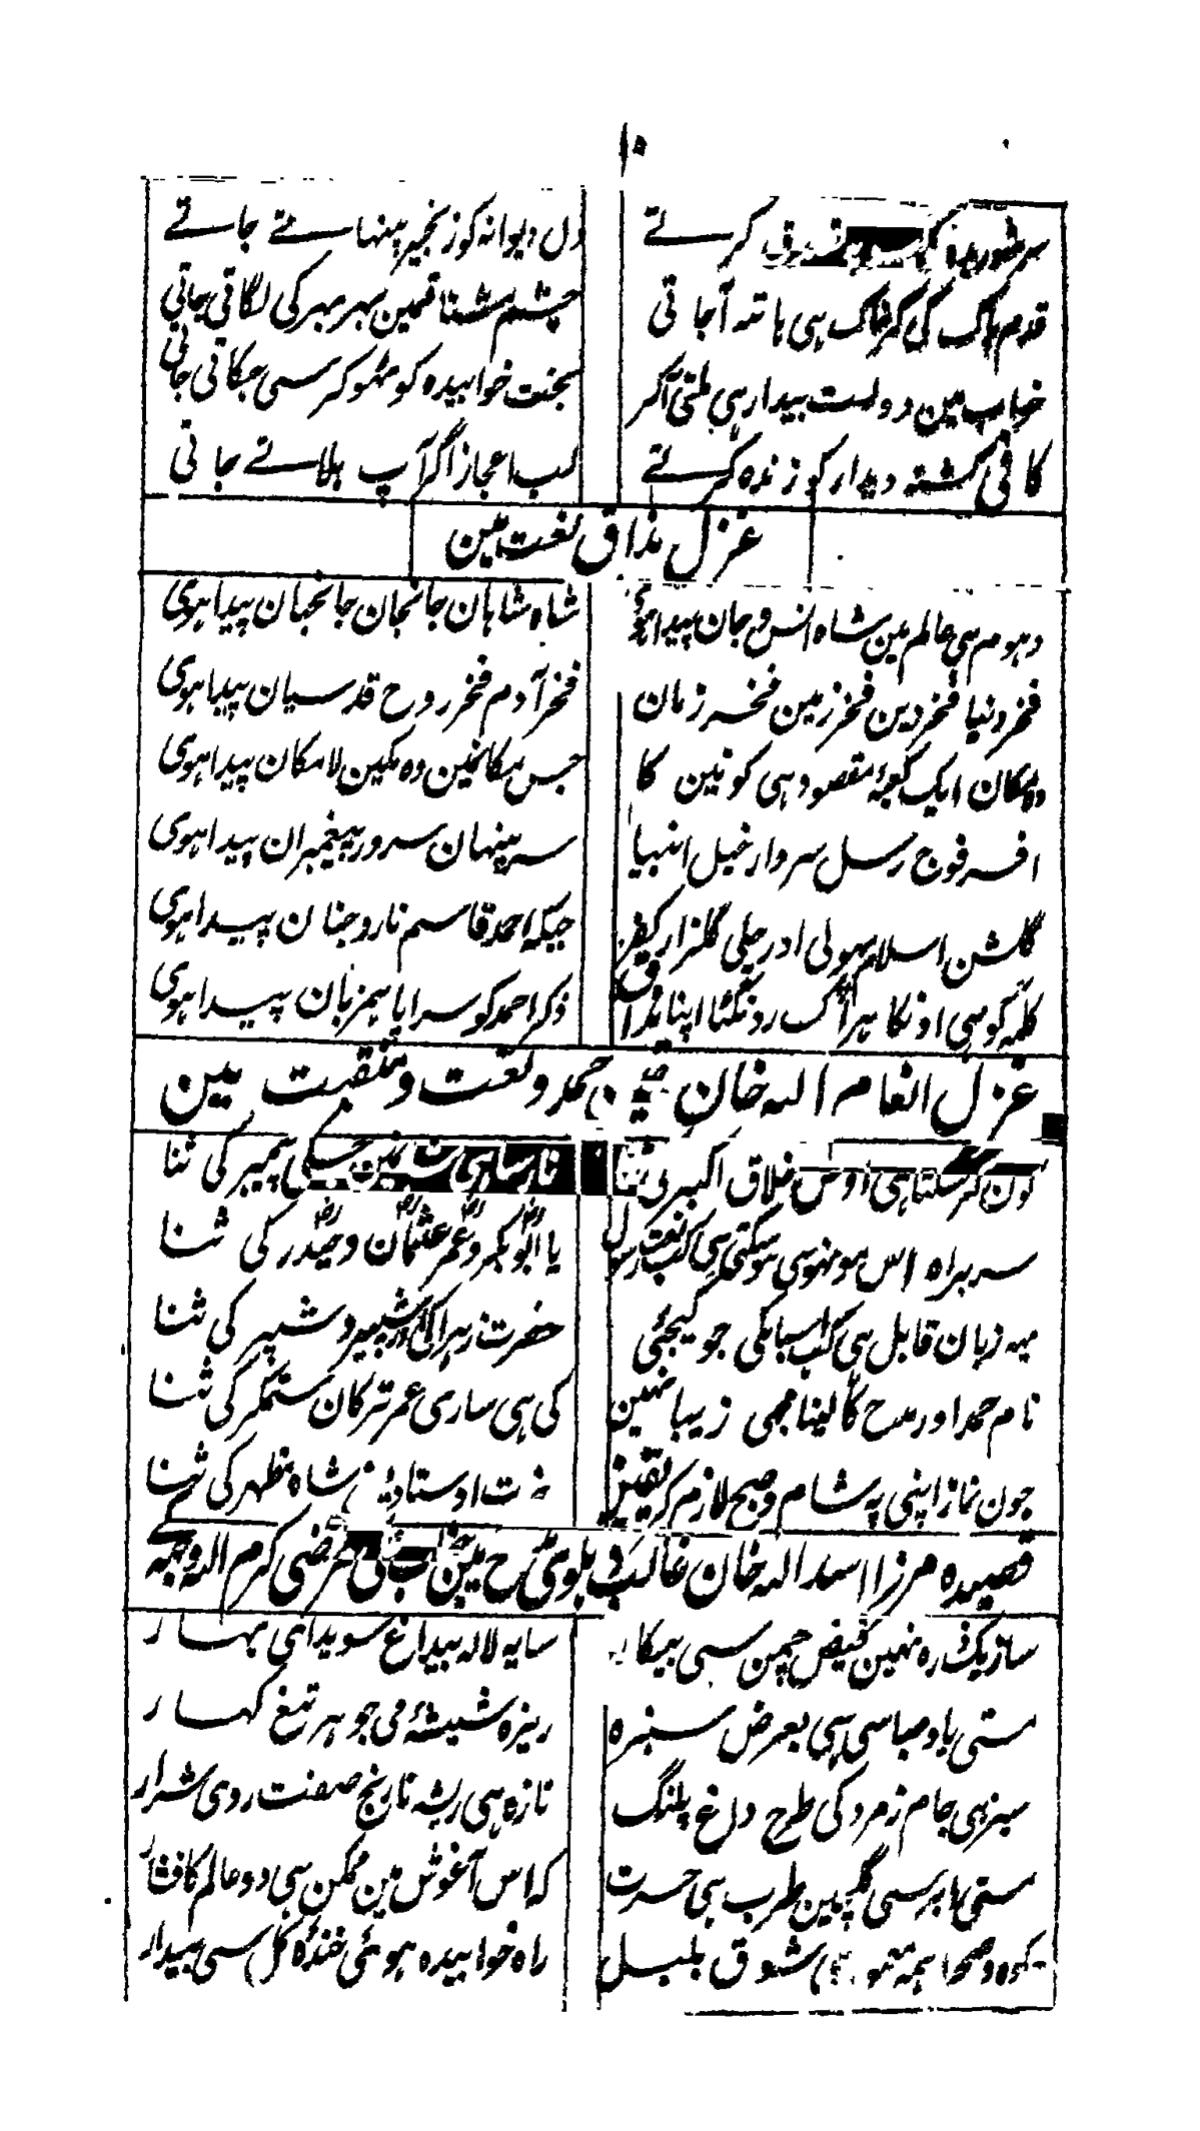 ۱۰
سر شوریدہ کرتے دل دیوانہ کو زنجیر پنہاتے جاتے
قدم پاک کی گر خاک ہی ہاتہ آجاتی چشم مشتاقمین بہر بہر کی لگاتی جاتی
خواب مین دولت بیدار ہی ملتی آکر بخت خوابیدہ کو ٹھوکر سی جگاتی جاتی
کافی کشتہ دیدار کو زندہ کرتے لب اعجاز اگر آپ ہلاتے جاتی
غزل مذاق نعت مین
دہوم ہی عالم مین شاہ انس و جان پیدا ہوئی شاہ شاہان جانجان جانجہان پیدا ہوی
فخر دنیا فخر دین فخر زمین فخر زمان فخر آدم فخر روح قدسیان پیدا ہوی
وہ مکان ایک کعبۂ مقصود ہی کونین کا جس مکانمین وہ مکین لامکان پیدا ہوی
افسر فوج رسل سردار خیل انبیا سر پنہان سرور پیغمبران پیدا ہوی
گلشن اسلام پہولی اور جلی گلزار کفر جبکہ احمد قاسم نار و جنان پیدا ہوی
کلمہ گو ہی اونکا ہر اک رونگٹا اپنا مذاق ذکر احمد کو سراپا ہمزبان پیدا ہوی
غزل انعام اللہ خان حمد و نعت و منقبت مین
کون کر سکتا ہی اوس خلاق اکبر کی ثنا نارسا ہی شان مین جسکی پیمبر کی ثنا
سربراہ اس مونہوسی ہو سکتی ہی کب نعت رسول یا ابوبکر و عمر عثمان و حیدر کی ثنا
یہہ زبان قابل ہی کب اسبات کی جو کیجئی حضرت زہرا کی اور شبیر و شبر کی ثنا
نام حمد اور مدح کا لینا مجھی زیبا نہین کی ہی ساری عمر ترکان ستمگر کی ثنا
جون نماز اپنی پہ شام و صبح لازم کر یقین اوستاد شاہ مظہر کی ثنا
قصیدہ مرزا اسد اللہ خان غالب دہلوی مدح مین جناب علی مرتضی کرم اللہ وجہہ کے
ساز یک ذرہ نہین فیض چمن سی بیکار سایہ لالہ بیداغ سویدای بہار
مستی باد صبا سی ہی بعرض سبزہ ریزہ شیشۂ می جوہر تیغ کہسار
سبز ہی جام زمرد کی طرح داغ پلنگ تازہ ہی ریشہ نارنج صفت روی شرار
مستی ابر سی گلچین طرب ہی حسرت کہ اس آغوش مین ممکن ہی دو عالم کا فشار
کوہ و صحرا ہمہ شوق بلبل راہ خوابیدہ ہوئی خندہ گل سی بیدار